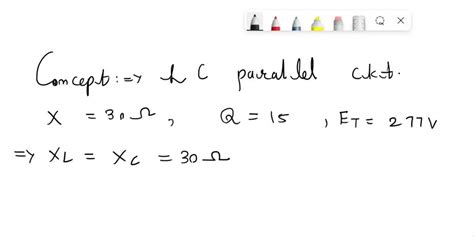 Concept :⇒ L C parallel ckt.
X = 30Ω , Q = 15 , E_T = 277V
⇒ X_L = X_C = 30Ω